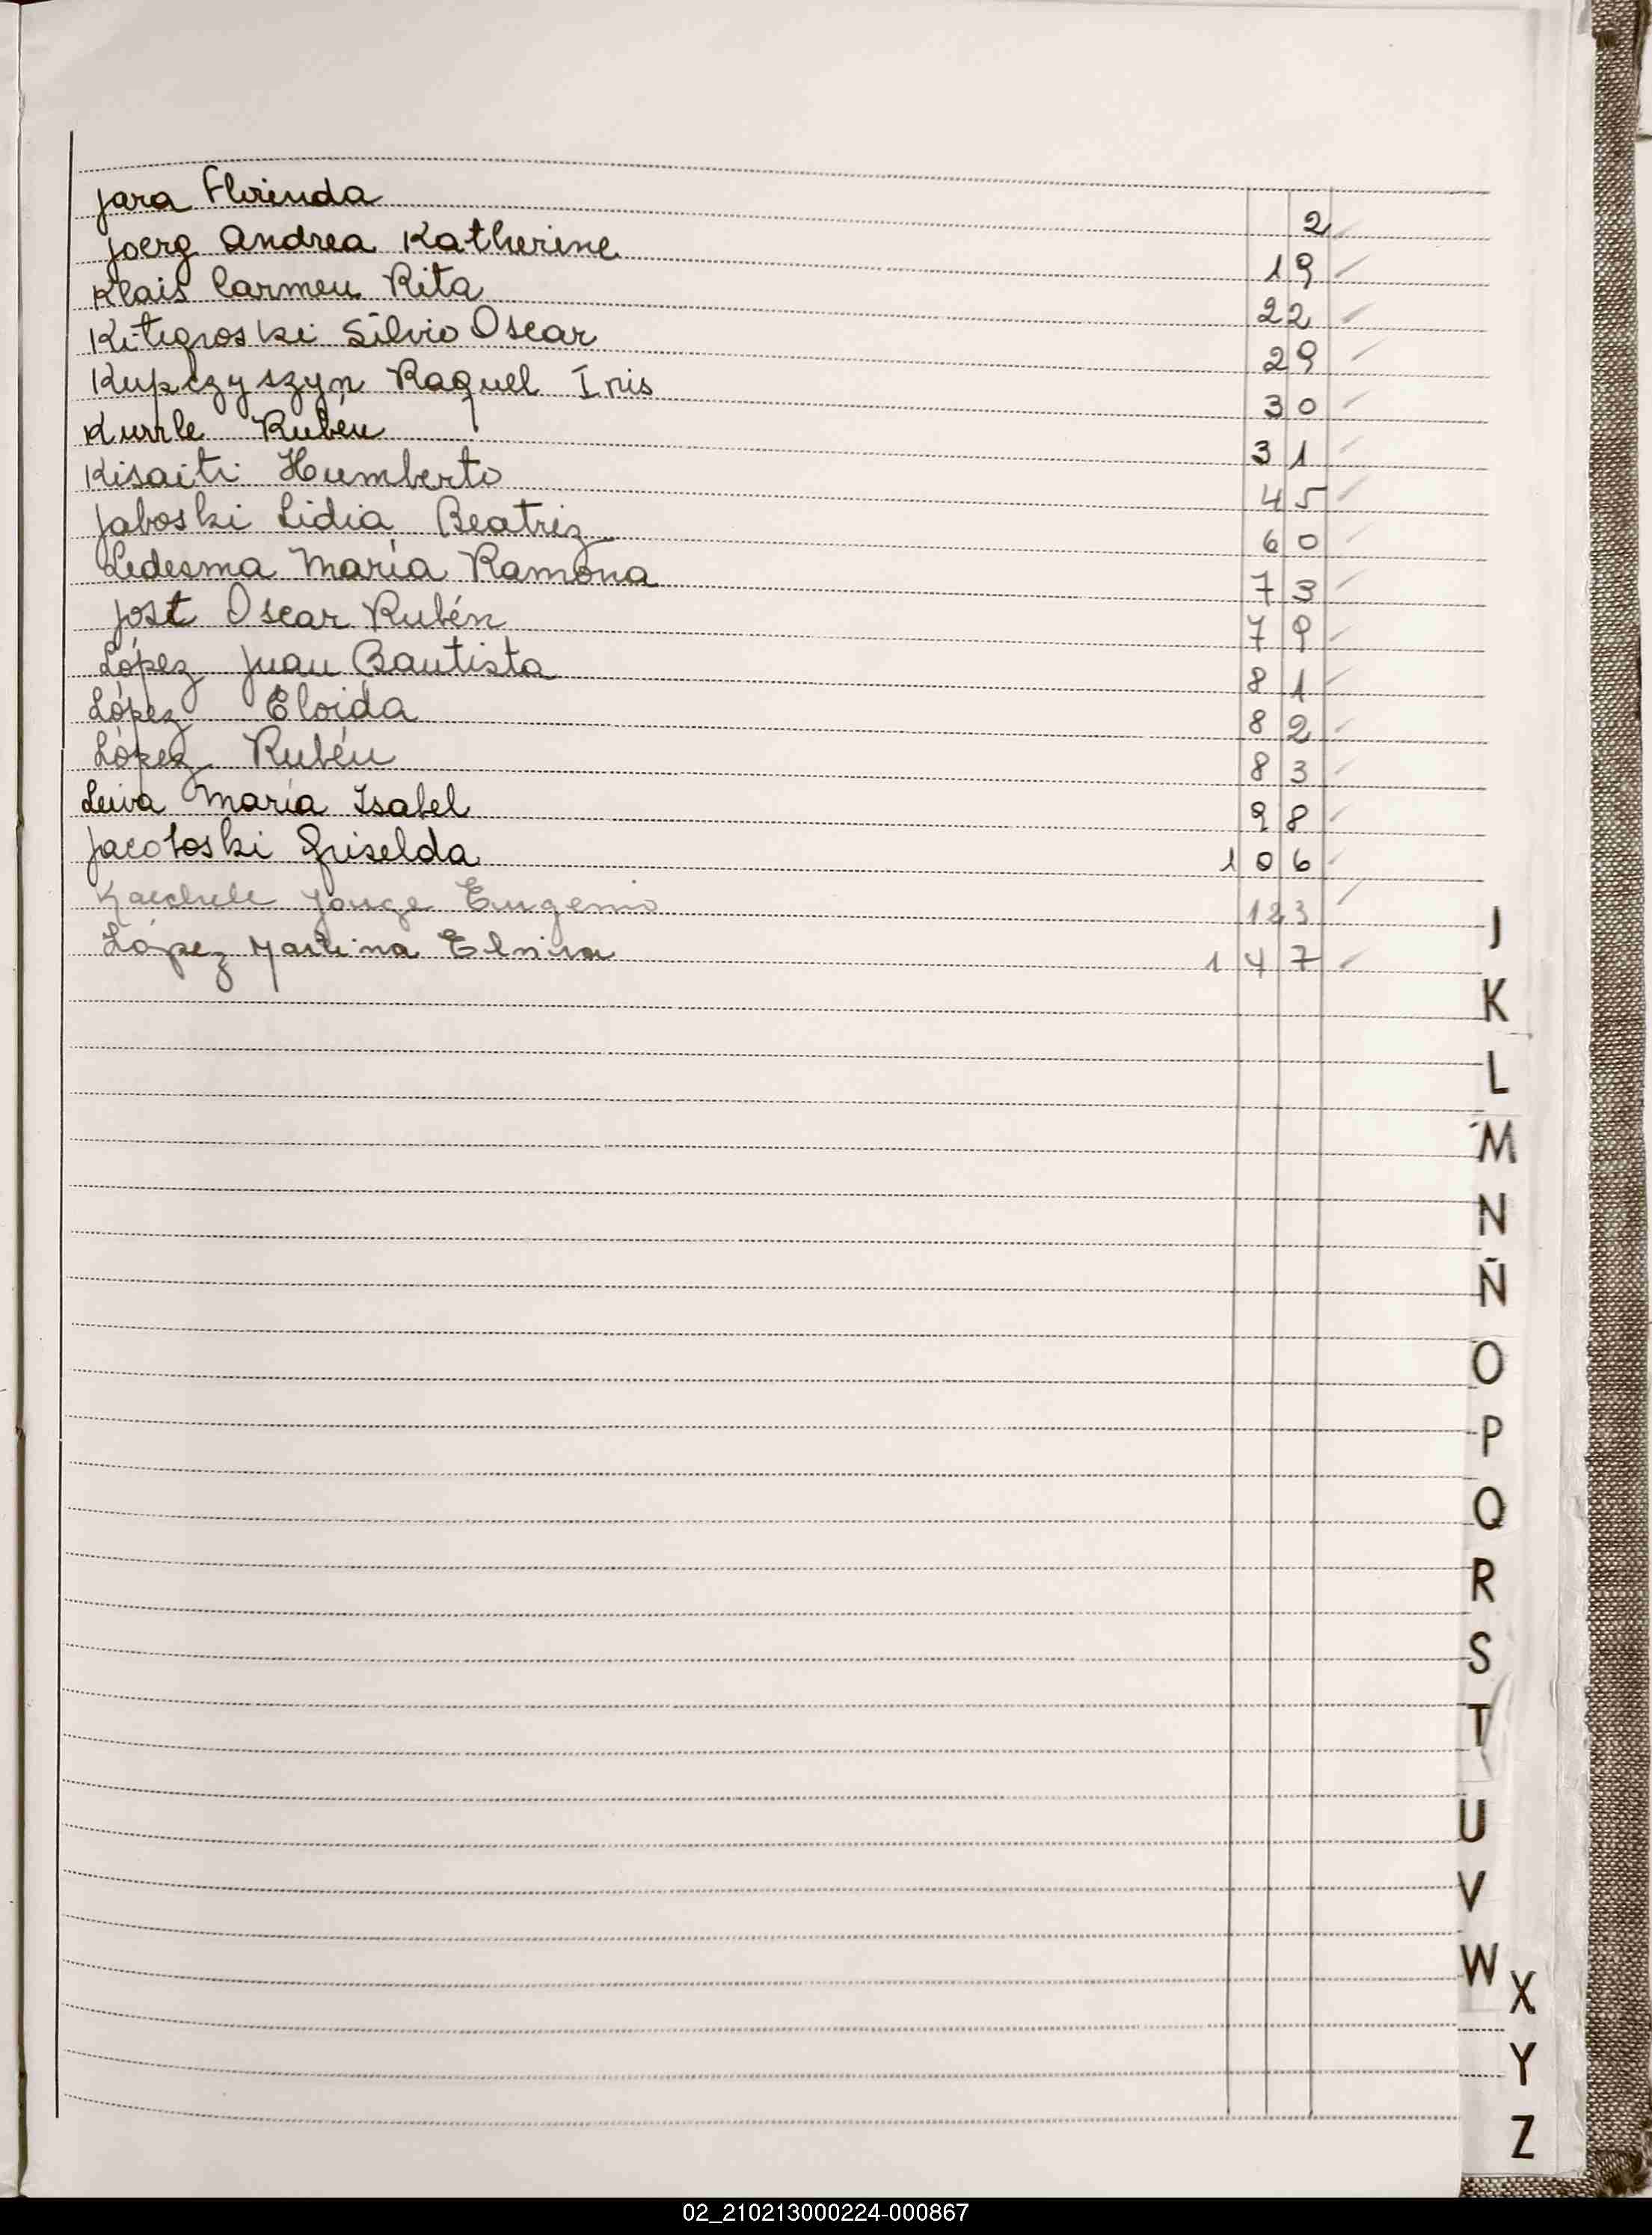 Jara Florinda 2
Joerg Andrea Katherine 19
Klais Carmen Rita 22
Kitegroski Silvio Oscar 29
Kupczyszyn Raquel Iris 30
Kurrle Rubén 31
Kisaiti Humberto 45
Jaboski Lidia Beatriz 60
Ledesma María Ramona 73
Jost Oscar Rubén 79
López Juan Bautista 81
López Eloida 82
López Rubén 83
Leiva María Isabel 98
Jacoboski Griselda 106
Jorge Eugenio 123
López Martina Elvira 147
J
K
L
M
N
Ñ
O
P
Q
R
S
T
U
V
W
X
Y
Z
02_210213000224-000867